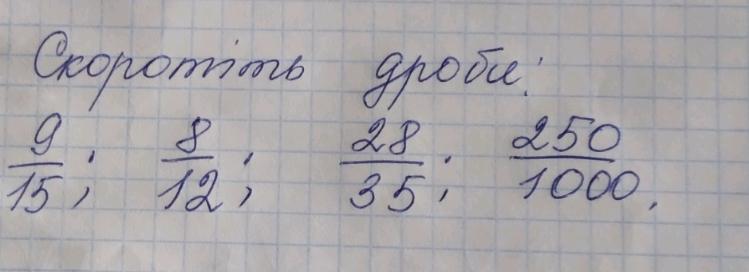 Скоротіть дроби:
9/15; 8/12; 28/35; 250/1000.